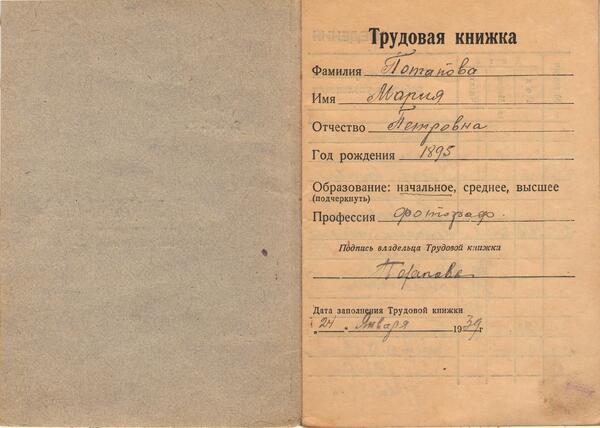 Трудовая книжка
Фамилия Потапова
Имя Мария
Отчество Петровна
Год рождения 1895
Образование: начальное, среднее, высшее
(подчеркнуть)
Профессия фотограф.
Подпись владельца Трудовой книжки
Потапова
Дата заполнения Трудовой книжки
„24„ Января 1939г